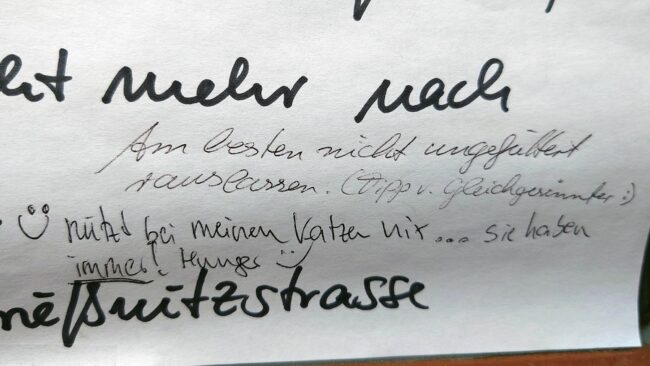 mehr nach
Am besten nicht ungefüttert
rauslassen. (Tipp v. Gleichgesinnter :)
nützt bei meinen Katzen nix... sie haben
immer! Hunger
nießnitzstrasse